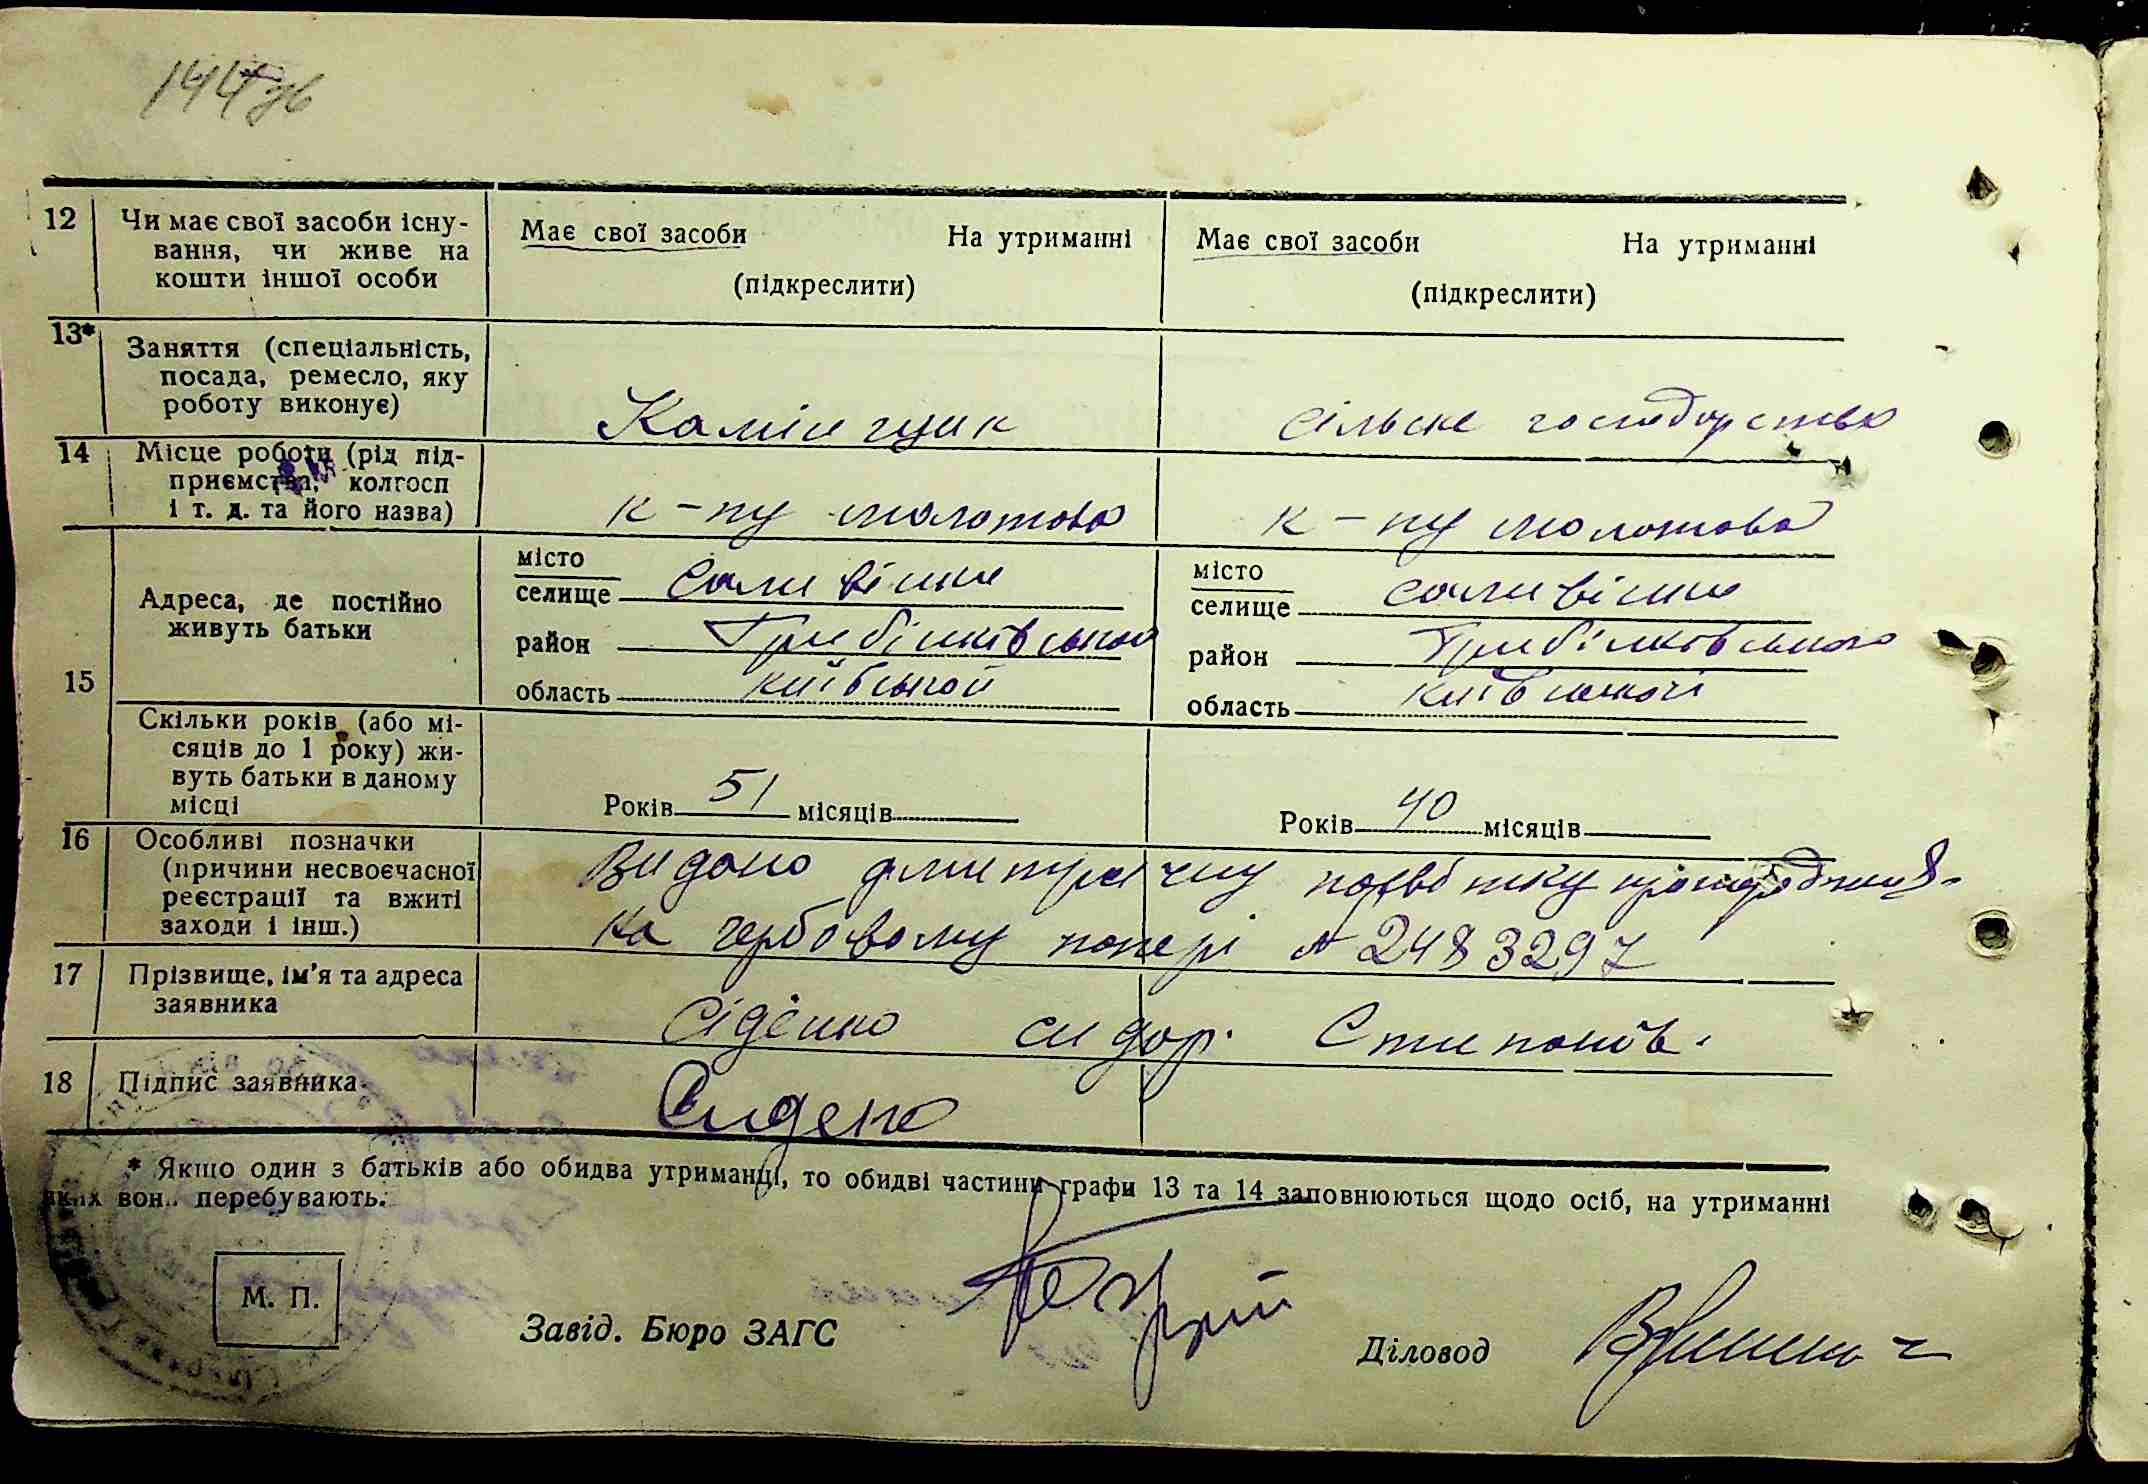 144зв
12 Чи має свої засоби існу- Має свої засоби На утриманні Має свої засоби На утриманні
вання, чи живе на
кошти іншої особи (підкреслити) (підкреслити)
13* Заняття (спеціальність,
посада, ремесло, яку
роботу виконує) Камінщик сільське господарство
14 Місце роботи (рід під-
приємства, колгосп
і т. д. та його назва) к-пу молотова к-пу молотова
15 Адреса, де постійно
живуть батьки
місто
селище Саливінки
район Гребінківського
область київської
місто
селище саливінки
район Гребінківського
область київської
Скільки років (або мі-
сяців до 1 року) жи-
вуть батьки в даному
місці Років 51 місяців Років 40 місяців
16 Особливі позначки Видано дметричну
(причини несвоєчасної
реєстрації та вжиті
заходи і інш.) на гербовому папері № 2483297
17 Прізвище, ім'я та адреса
заявника Сіденко сидор. Степанов.
18 Підпис заявника Сидено
* Якщо один з батьків або обидва утриманці, то обидві частини графи 13 та 14 заповнюються щодо осіб, на утриманні
яких вони перебувають.
М. П.
Завід. Бюро ЗАГС
Діловод